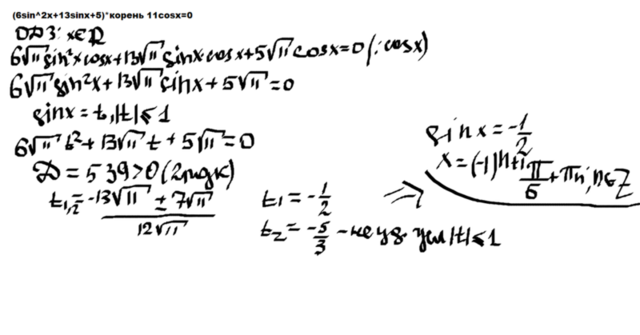 (6sin^2x+13sinx+5)*корень 11cosx=0
ОДЗ: x∈R
6√11 sin²x cosx+13√11 sinx·cosx+5√11 cosx=0 (:cosx)
6√11 sin²x+13√11 sinx+5√11=0
sinx=t, |t|≤1
6√11 t²+13√11 t+5√11=0
D=539>0 (2 рдк)
t1,2=-13√11 ± 7√11
12√11
t1=-1/2
t2=-5/3 - не уд. усл |t|≤1
=>
sinx=-1/2
x=(-1)^n+1 π/6+πn, n∈Z